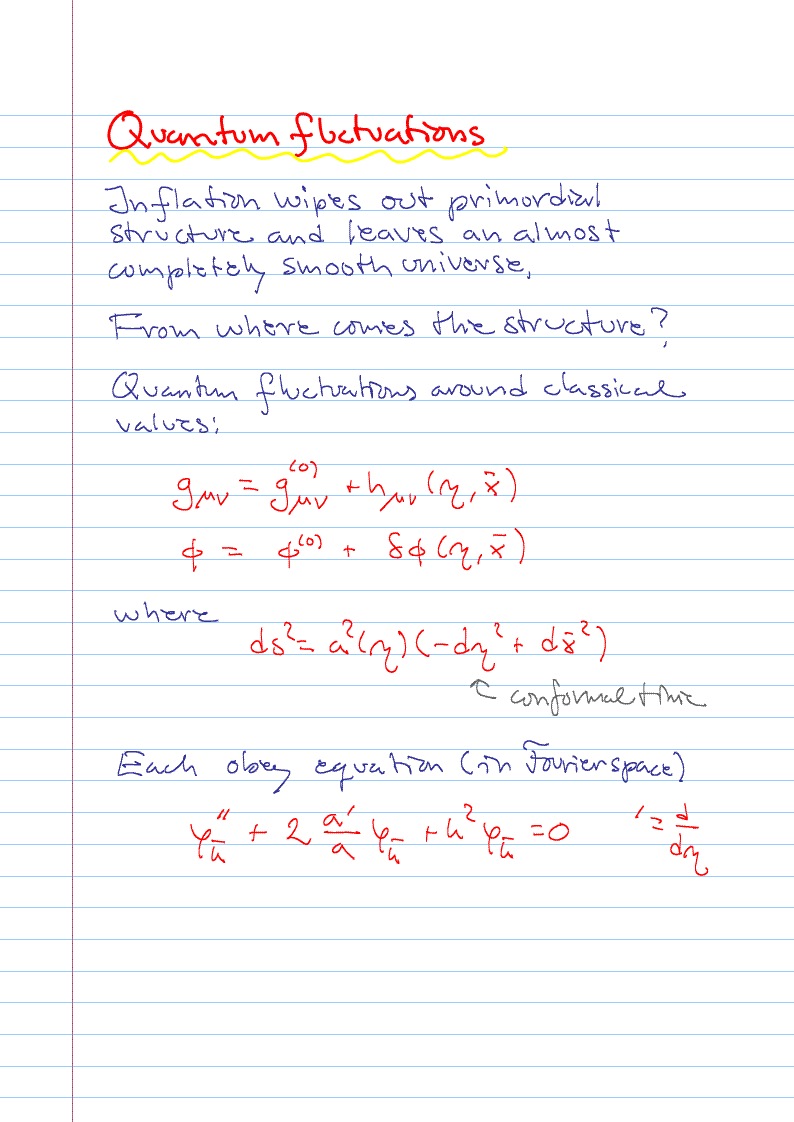 Quantum fluctuations
Inflation wipes out primordial
structure and leaves an almost
completely smooth universe.
From where comes the structure?
Quantum fluctuations around classical
values:
g_μν = g_μν^(0) + h_μν (η, x̄)
φ = φ^(0) + δφ (η, x̄)
where
ds² = a²(η) (-dη² + dx̄²)
↖ conformal time
Each obey equation (in Fourier space)
φ_k̄'' + 2 a'/a φ_k̄ + k² φ_k̄ = 0   ' = d/dη